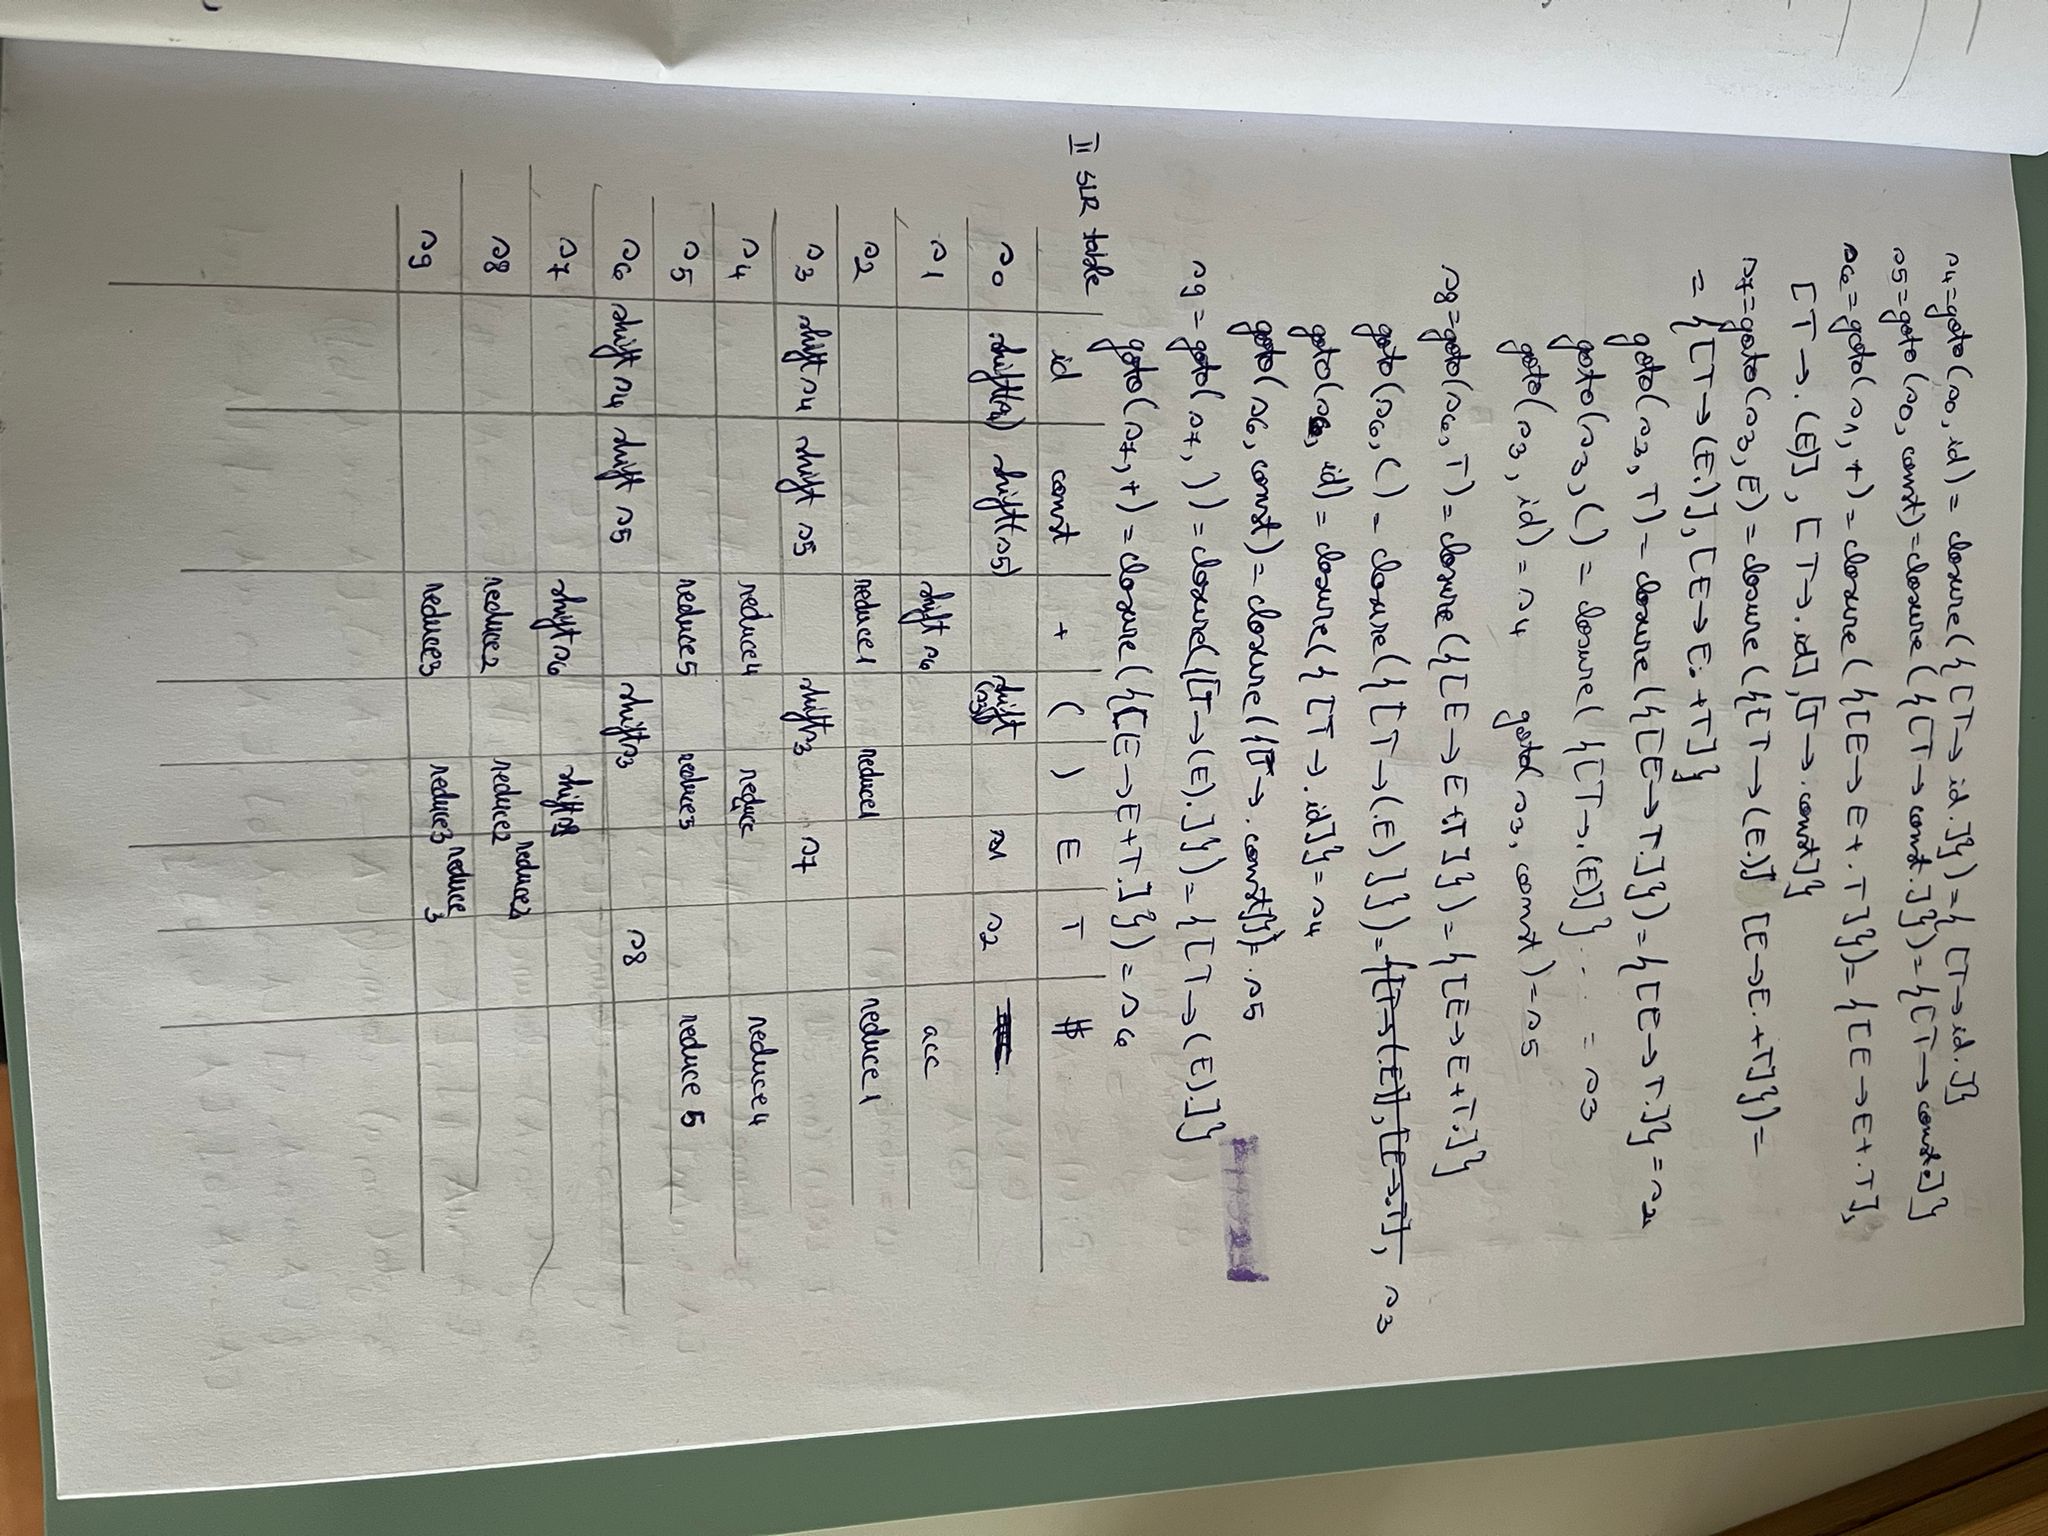 s4=goto(s0, id) = closure({[T→ id.]}) = { [T→id.]}
s5=goto(s0, const)=closure({[T→const.]})={[T→const.]}
s6=goto(s1, +) = closure({[E→E+.T]})= {[E→E+.T],
[T→.(E)], [T→.id], [T→.const]}
s7=goto(s3, E) = closure({[T→(E.)] [E→E.+T]})=
= {[T→(E.)], [E→E.+T]}
goto(s3, T) = closure({[E→T.]})={[E→T.]} = s2
goto(s3, () = closure({[T→.(E)]} .... = s3
goto(s3, id) = s4 goto(s3, const)=s5
s8=goto(s6, T) = closure({[E→E+.T]})={[E→E+T.]}
goto(s6, () = closure({[T→(.E)]})={[T→(.E)], [E→.T], s3
goto(s6, id) = closure({[T→.id]}=s4
goto(s6, const) = closure({[T→.const]})=.s5
s9 = goto(s7, )) = closure({[T→(E).]})={[T→(E).]}
goto(s7, +) = closure({[E→E+T.]}) = s6
II SLR table
id const + ( ) E T $
s0 shift(s4) shift(s5) shift (s3) s1 s2 acc
s1 shift s6 acc
s2 reduce1 reduce1 reduce 1
s3 shift s4 shift s5 shift s3 s7
s4 reduce4 reduce 4 reduce4
s5 reduce5 reduce5 reduce 5
s6 shift s4 shift s5 shift s3 s8
s7 shift s6 shift s9
s8 reduce2 reduce2 reduce2
s9 reduce3 reduce3 reduce 3